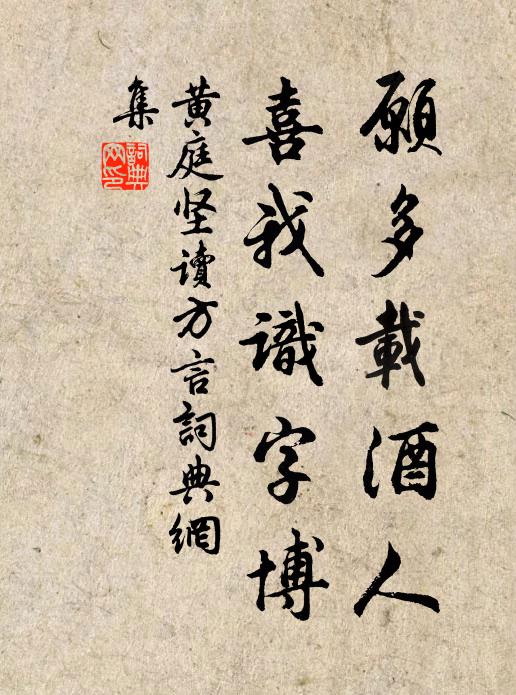 願多載酒人
喜我識字博
黄庭坚讀方言詞典網
集
詞典
网印